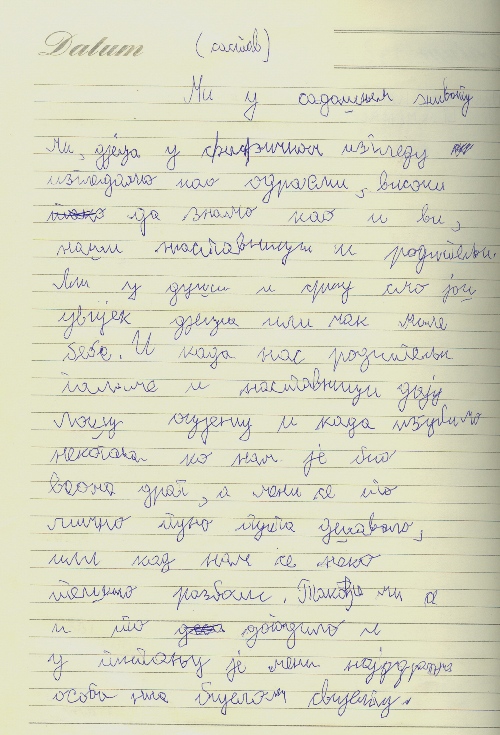 Datum (састав)
Ми у садашњем животу
Ми, дјеца у физичком изгледу
изгледамо као одрасли, високи
да знамо као и ви,
наши наставници и родитељи.
Али у души и срцу смо још
увијек дјеца или чак мале
бебе. И када нас родитељи
и наставници дају
лошу оцјену и када изгубимо
некога ко нам је био
веома драг, а мени се то
лично пуно пута дешавало,
или кад нам се неко
тешко разболи. Такође ми се
и то догодило и
у питању је мени најдража
особа на бијелом свијету.